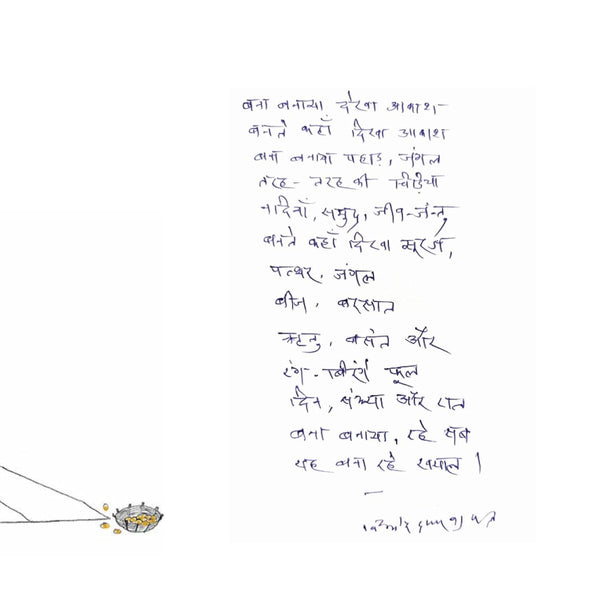 बना बनाया देखा आकाश
बनते कहाँ दिखा आकाश
बना बनाया पहाड़, जंगल
तरह-तरह की चिड़िया
नदियाँ, समुद्र, जीव-जन्तु
बनते कहाँ दिखा सूरज,
पत्थर, जंगल
बीज, बरसात
ऋतु, बसंत और
रंग-बिरंगे फूल
दिन, संध्या और रात
बना बनाया, रहे सब
यह बना रहे ख्याल।